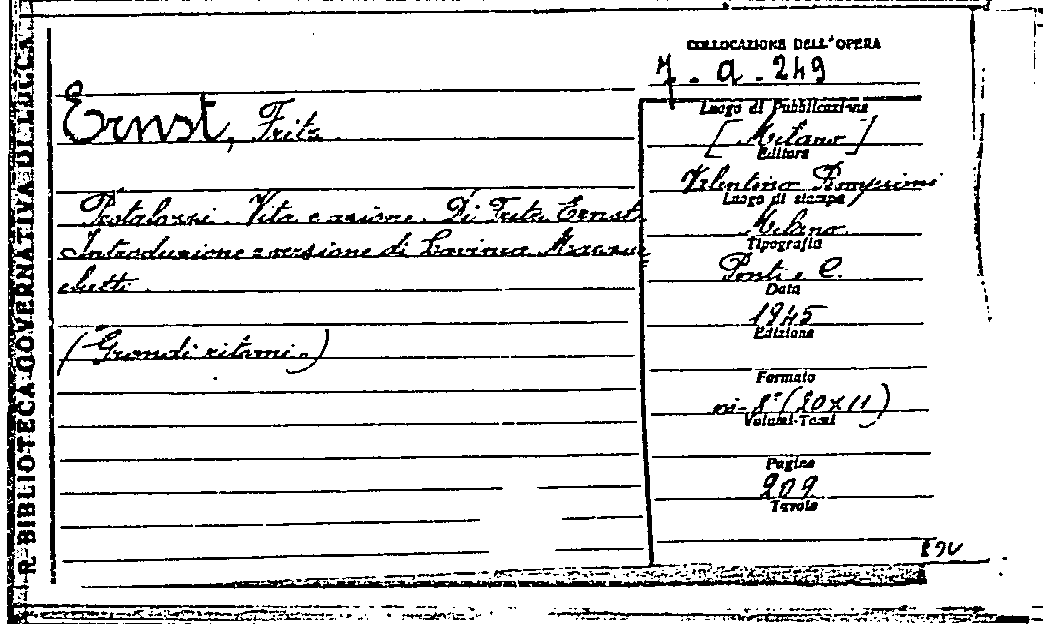 R. BIBLIOTECA GOVERNATIVA DI LUCCA
COLLOCAZIONE DELL'OPERA
7 . a . 249
Ernst, Fritz
Pestalozzi. Vita e azione. Di Fritz Ernst.
Introduzione e versione di Lavinia Mazzuc
chetti.
(Grandi ritorni.)
Luogo di Pubblicazione
[Milano]
Editore
Valentino Bompiani
Luogo di stampa
Milano
Tipografia
Ponti e C.
Data
1945
Edizione
Formato
in-8° (20x11)
Volumi-Tomi
Pagine
209
Tavole